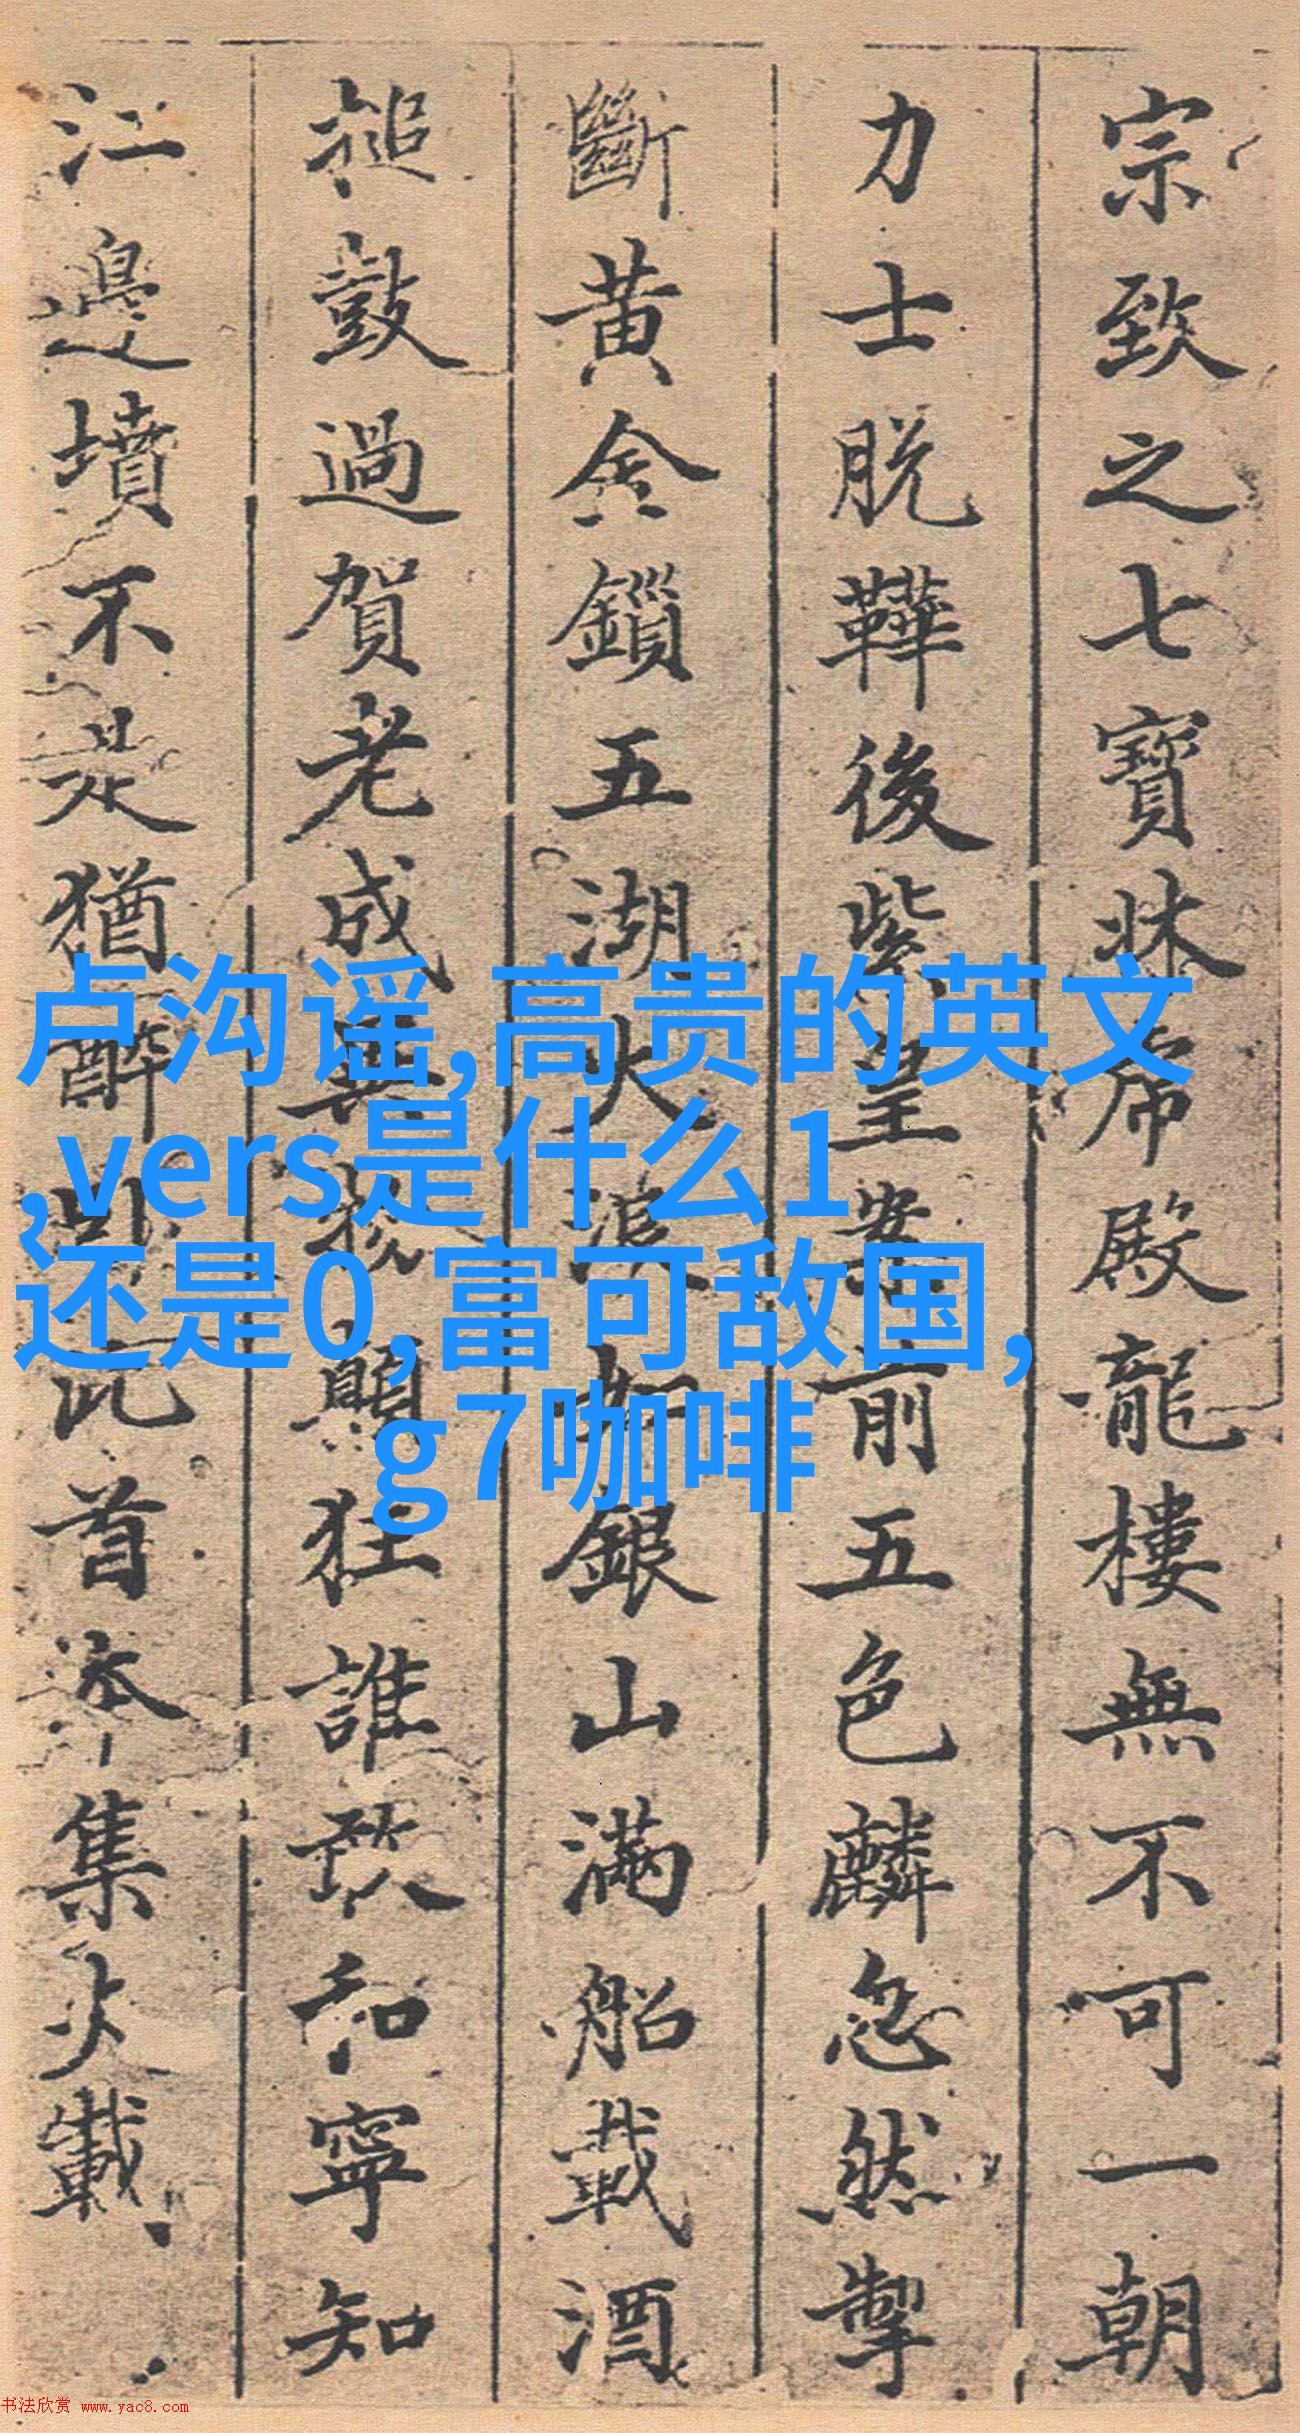 宗致之七寶牀席殿龍樓無不可一朝
力士脱鞾後紫皇案前五色麟忽然掣
斷黄金鎖五湖大浪如銀山滿船載酒
搥鼓過賀老成異物顛狂誰敢和寧知
江邊墳不是猶醉 此首本集少載
卢沟谣,高贵的英文
,vers是什么1
还是0,富可敌国,
g7咖啡
书法欣赏 www.yac8.com